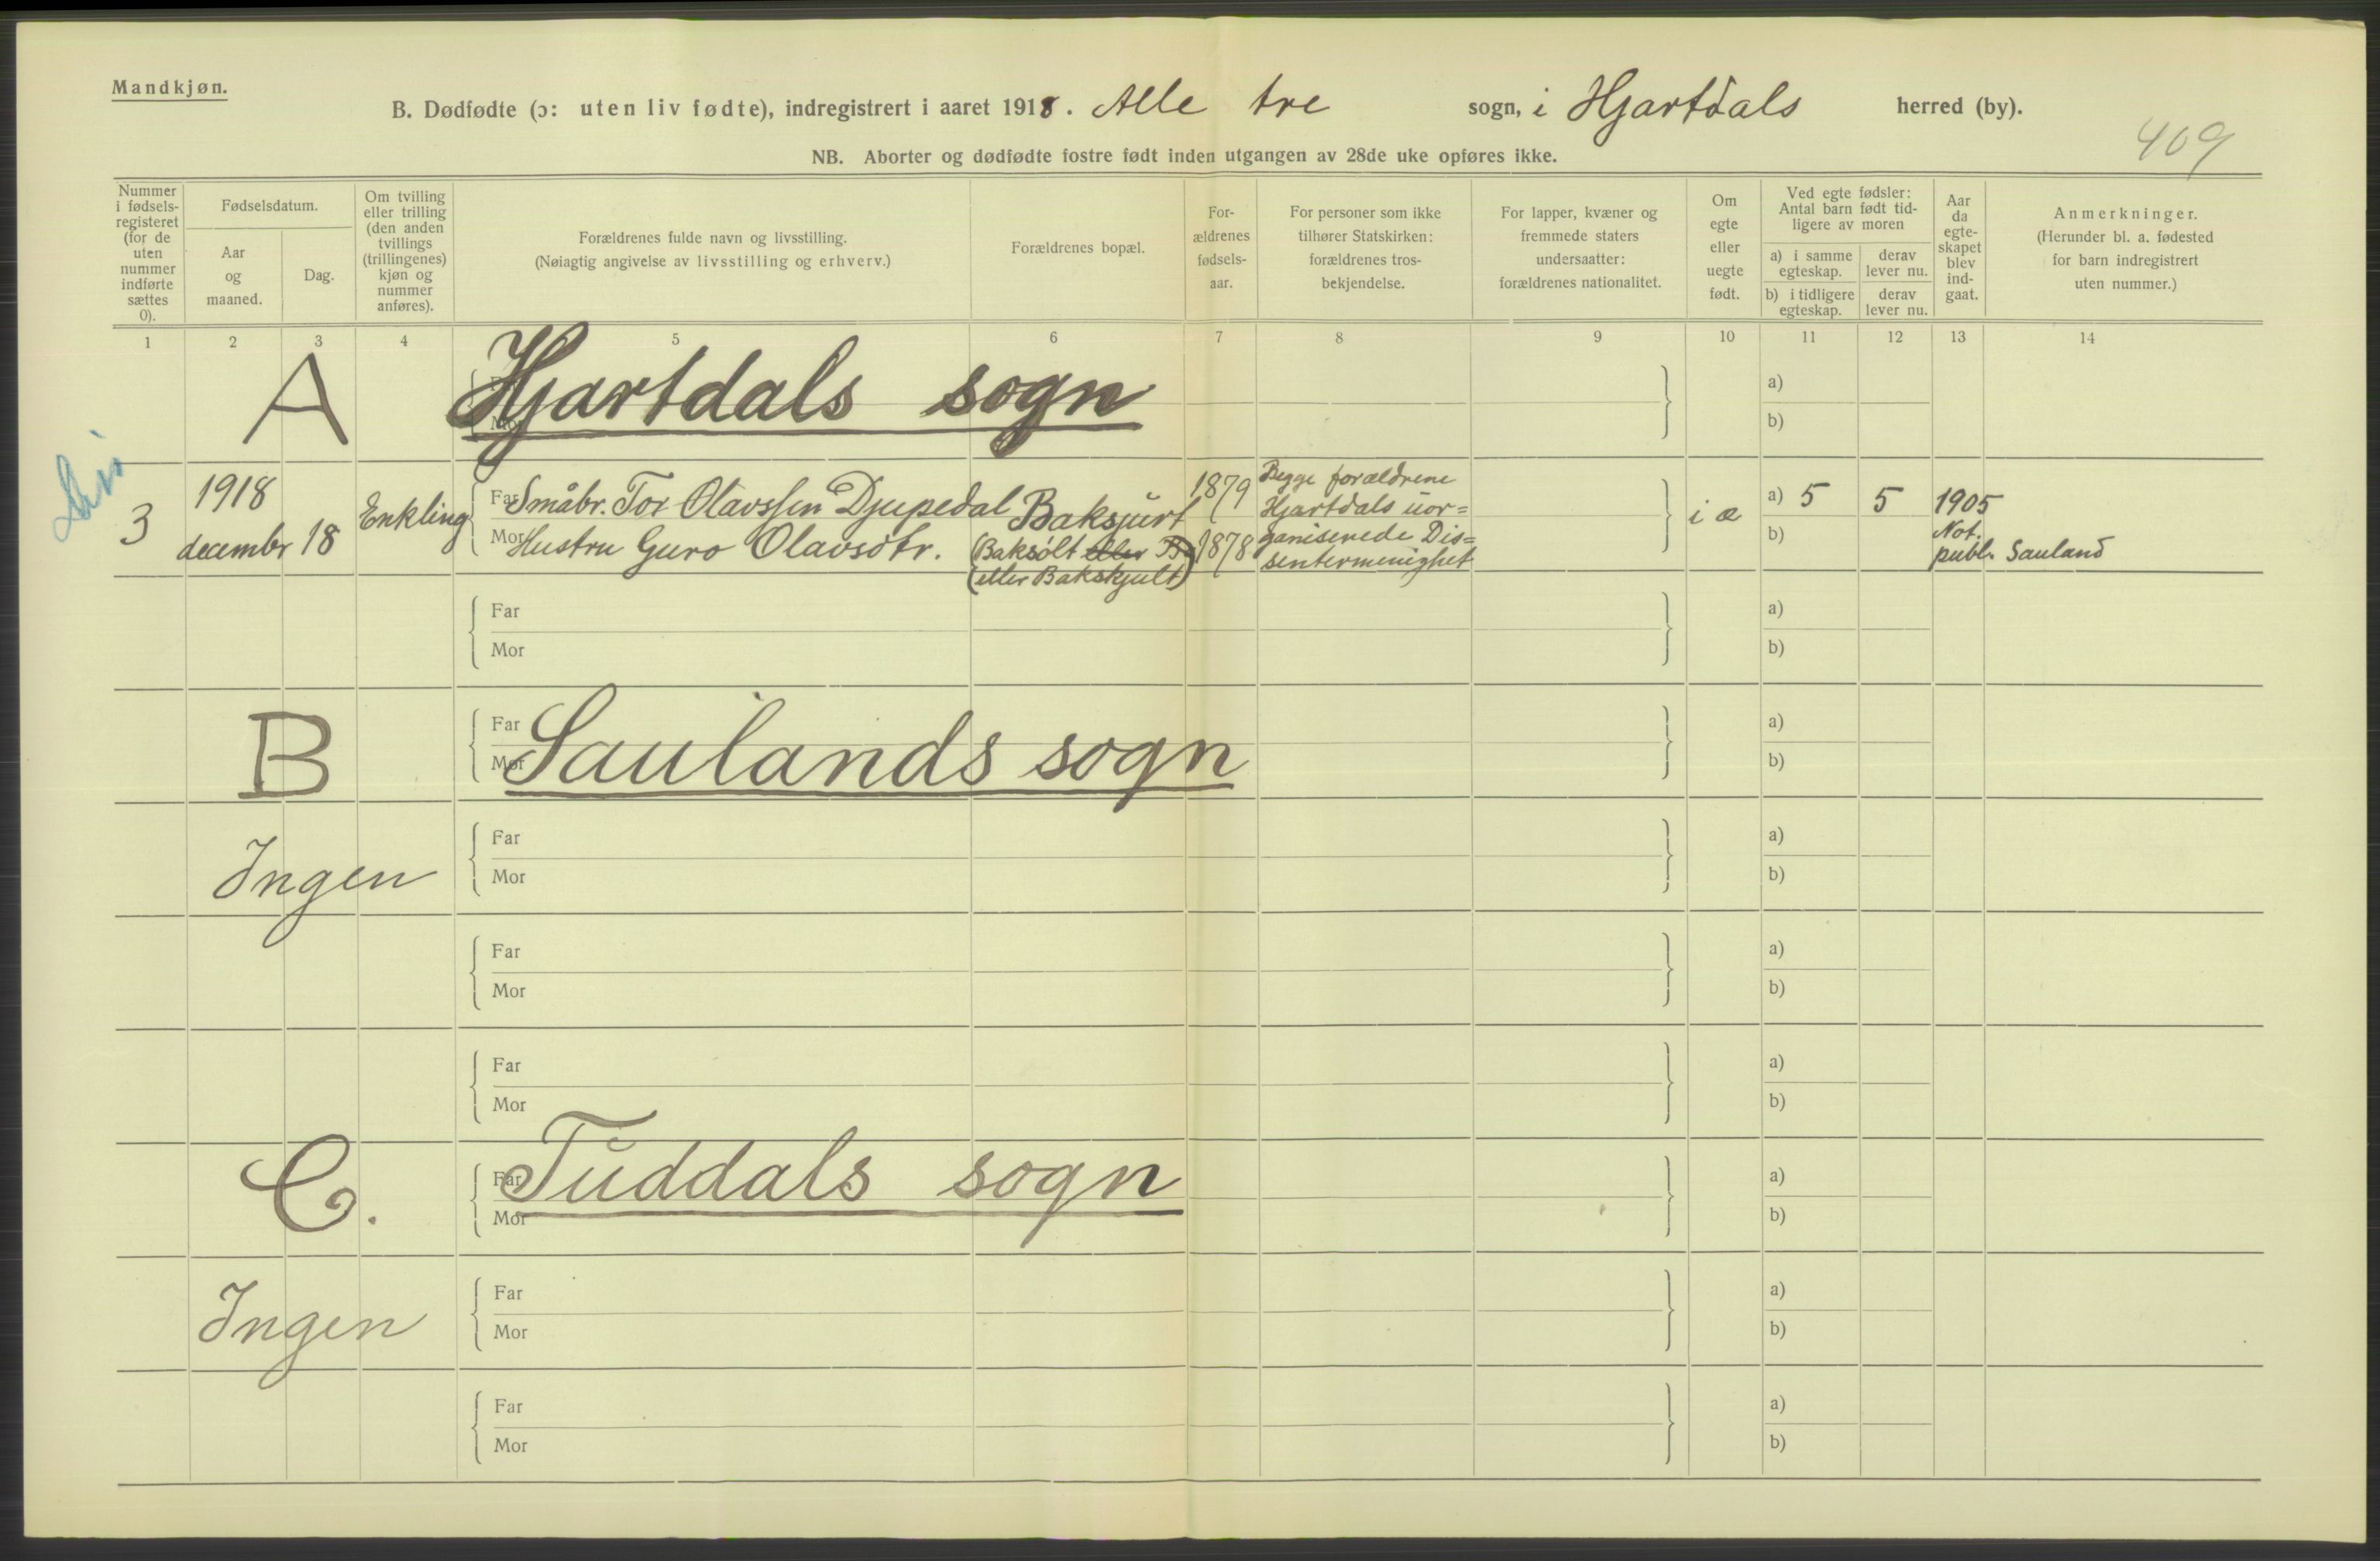 Mandkjøn.
B. Dødfødte (ɔ: uten liv fødte), indregistrert i aaret 1918. Alle tre sogn, i Hjartdals herred (by).
409
NB. Aborter og dødfødte fostre født inden utgangen av 28de uke opføres ikke.
Nummer
i fødsels-
registeret
(for de
uten
nummer
indførte
sættes
0).
Fødselsdatum.
Aar
og
maaned.
Dag.
Om tvilling
eller trilling
(den anden
tvillings
(trillingenes)
kjøn og
nummer
anføres).
Forældrenes fulde navn og livsstilling.
(Nøiagtig angivelse av livsstilling og erhverv.)
Forældrenes bopæl.
For-
ældrenes
fødsels-
aar.
For personer som ikke
tilhører Statskirken:
forældrenes tros-
bekjendelse.
For lapper, kvæner og
fremmede staters
undersaatter:
forældrenes nationalitet.
Om
egte
eller
uegte
født.
Ved egte fødsler:
Antal barn født tid-
ligere av moren
a) i samme
egteskap.
derav
lever nu.
b) i tidligere
egteskap.
derav
lever nu.
Aar
da
egte-
skapet
blev
ind-
gaat.
Anmerkninger.
(Herunder bl. a. fødested
for barn indregistrert
uten nummer.)
1 2 3 4 5 6 7 8 9 10 11 12 13 14
A Hjartdals sogn
Far
Mor
a)
b)
3
1918
decembr 18
Enkling
Far Småbr. Tor Olavssen Djupedal
Mor Hustru Guro Olavsdtr.
Baksjurt
(Baksølt eller Ba
(eller Bakskjult)
1879
1878
Begge forældrene
Hjartdals uor=
ganiserede Dis=
sentermenighet
i æ
a) 5 5
b)
1905
Not.
publ. Sauland
Far
Mor
a)
b)
B Saulands sogn
Far
Mor
a)
b)
Ingen
Far
Mor
a)
b)
Far
Mor
a)
b)
Far
Mor
a)
b)
C. Tuddals sogn
Far
Mor
a)
b)
Ingen
Far
Mor
a)
b)
Far
Mor
a)
b)